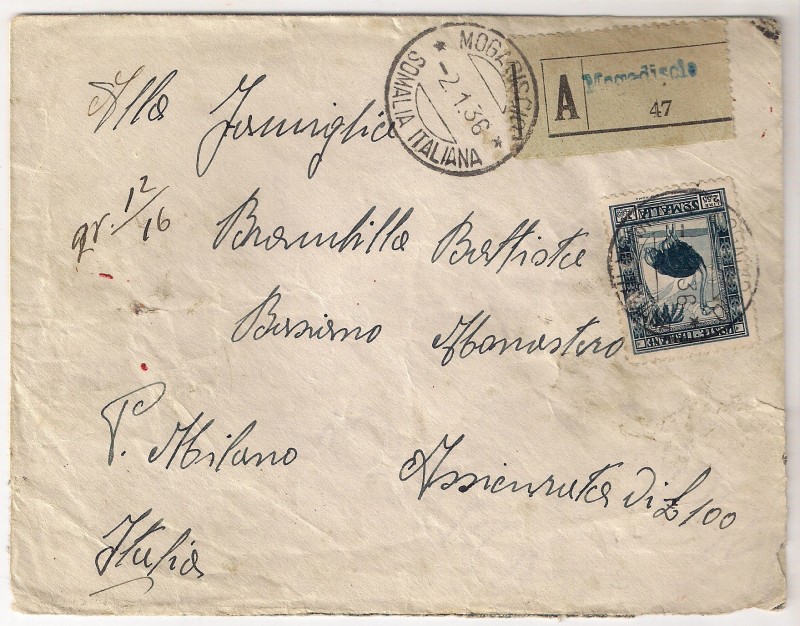 MOGADISCIO
-2.1.36
SOMALIA ITALIANA
A
Mogadiscio
47
Alla Famiglia
gr. 12/16
Brambilla Battista
Basiano Monastero
P. Milano
Assicurata di £ 100
Italia
SOMALIA
POSTE ITALIANE
36